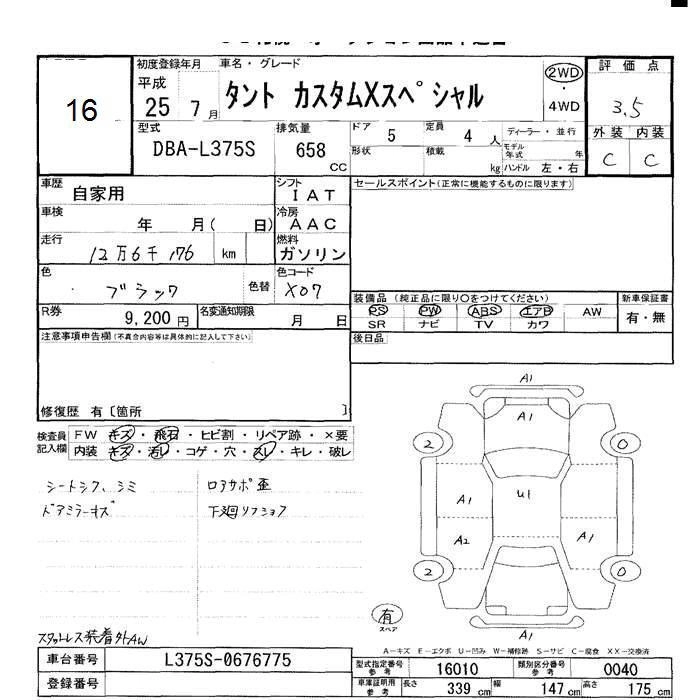 16
初度登録年月 車名・グレード
平成 25 7月
タント カスタムXスペシャル
2WD
・
4WD
評価点
3.5
外装 内装
C C
型式 DBA-L375S
排気量 658 CC
ドア 5 定員 4人
形状 積載 kg
ディーラー・並行
モデル年式 年
ハンドル 左・右
車歴 自家用
シフト IAT
セールスポイント(正常に機能するものに限ります)
車検 年 月( 日)
冷房 AAC
走行 12万6千176 km
燃料 ガソリン
色 ブラック 色替
色コード X07
装備品 (純正品に限り○をつけてください) 新車保証書
PS PW ABS エアB AW 有・無
SR ナビ TV カワ
R券 9,200円 名変通知期限 月 日
後日品
注意事項申告欄(不具合内容等は具体的に記入して下さい)
修復歴 有〔箇所 〕
検査員記入欄
FW キズ・飛石・ヒビ割・リペア跡・×要
内装 キズ・汚レ・コゲ・穴・スレ・キレ・破レ
シートシワ、シミ ロアサポ歪
ドアミラーキズ 下廻リフショク
スタットレス装着外AW
A1
A1
2 0
A1 U1
A2 A1
2 0
A1
有
スペア
A-キズ E-エクボ U-凹み W-補修跡 S-サビ C-腐食 XX-交換済
車台番号 L375S-0676775
型式指定番号 参考 16010 類別区分番号 参考 0040
登録番号
車庫証明用 参考 長さ 339 cm 幅 147 cm 高さ 175 cm